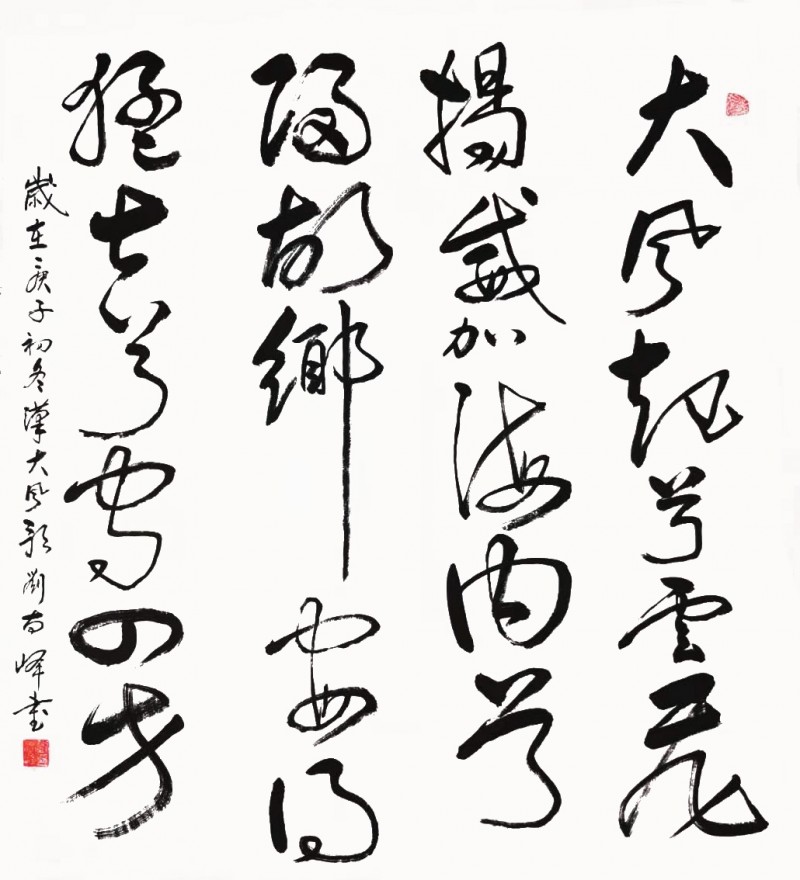 大風起兮雲飛
揚威加海内兮
歸故鄉安得
猛士兮守四方
歲在庚子初冬漢大風歌劉南峰書